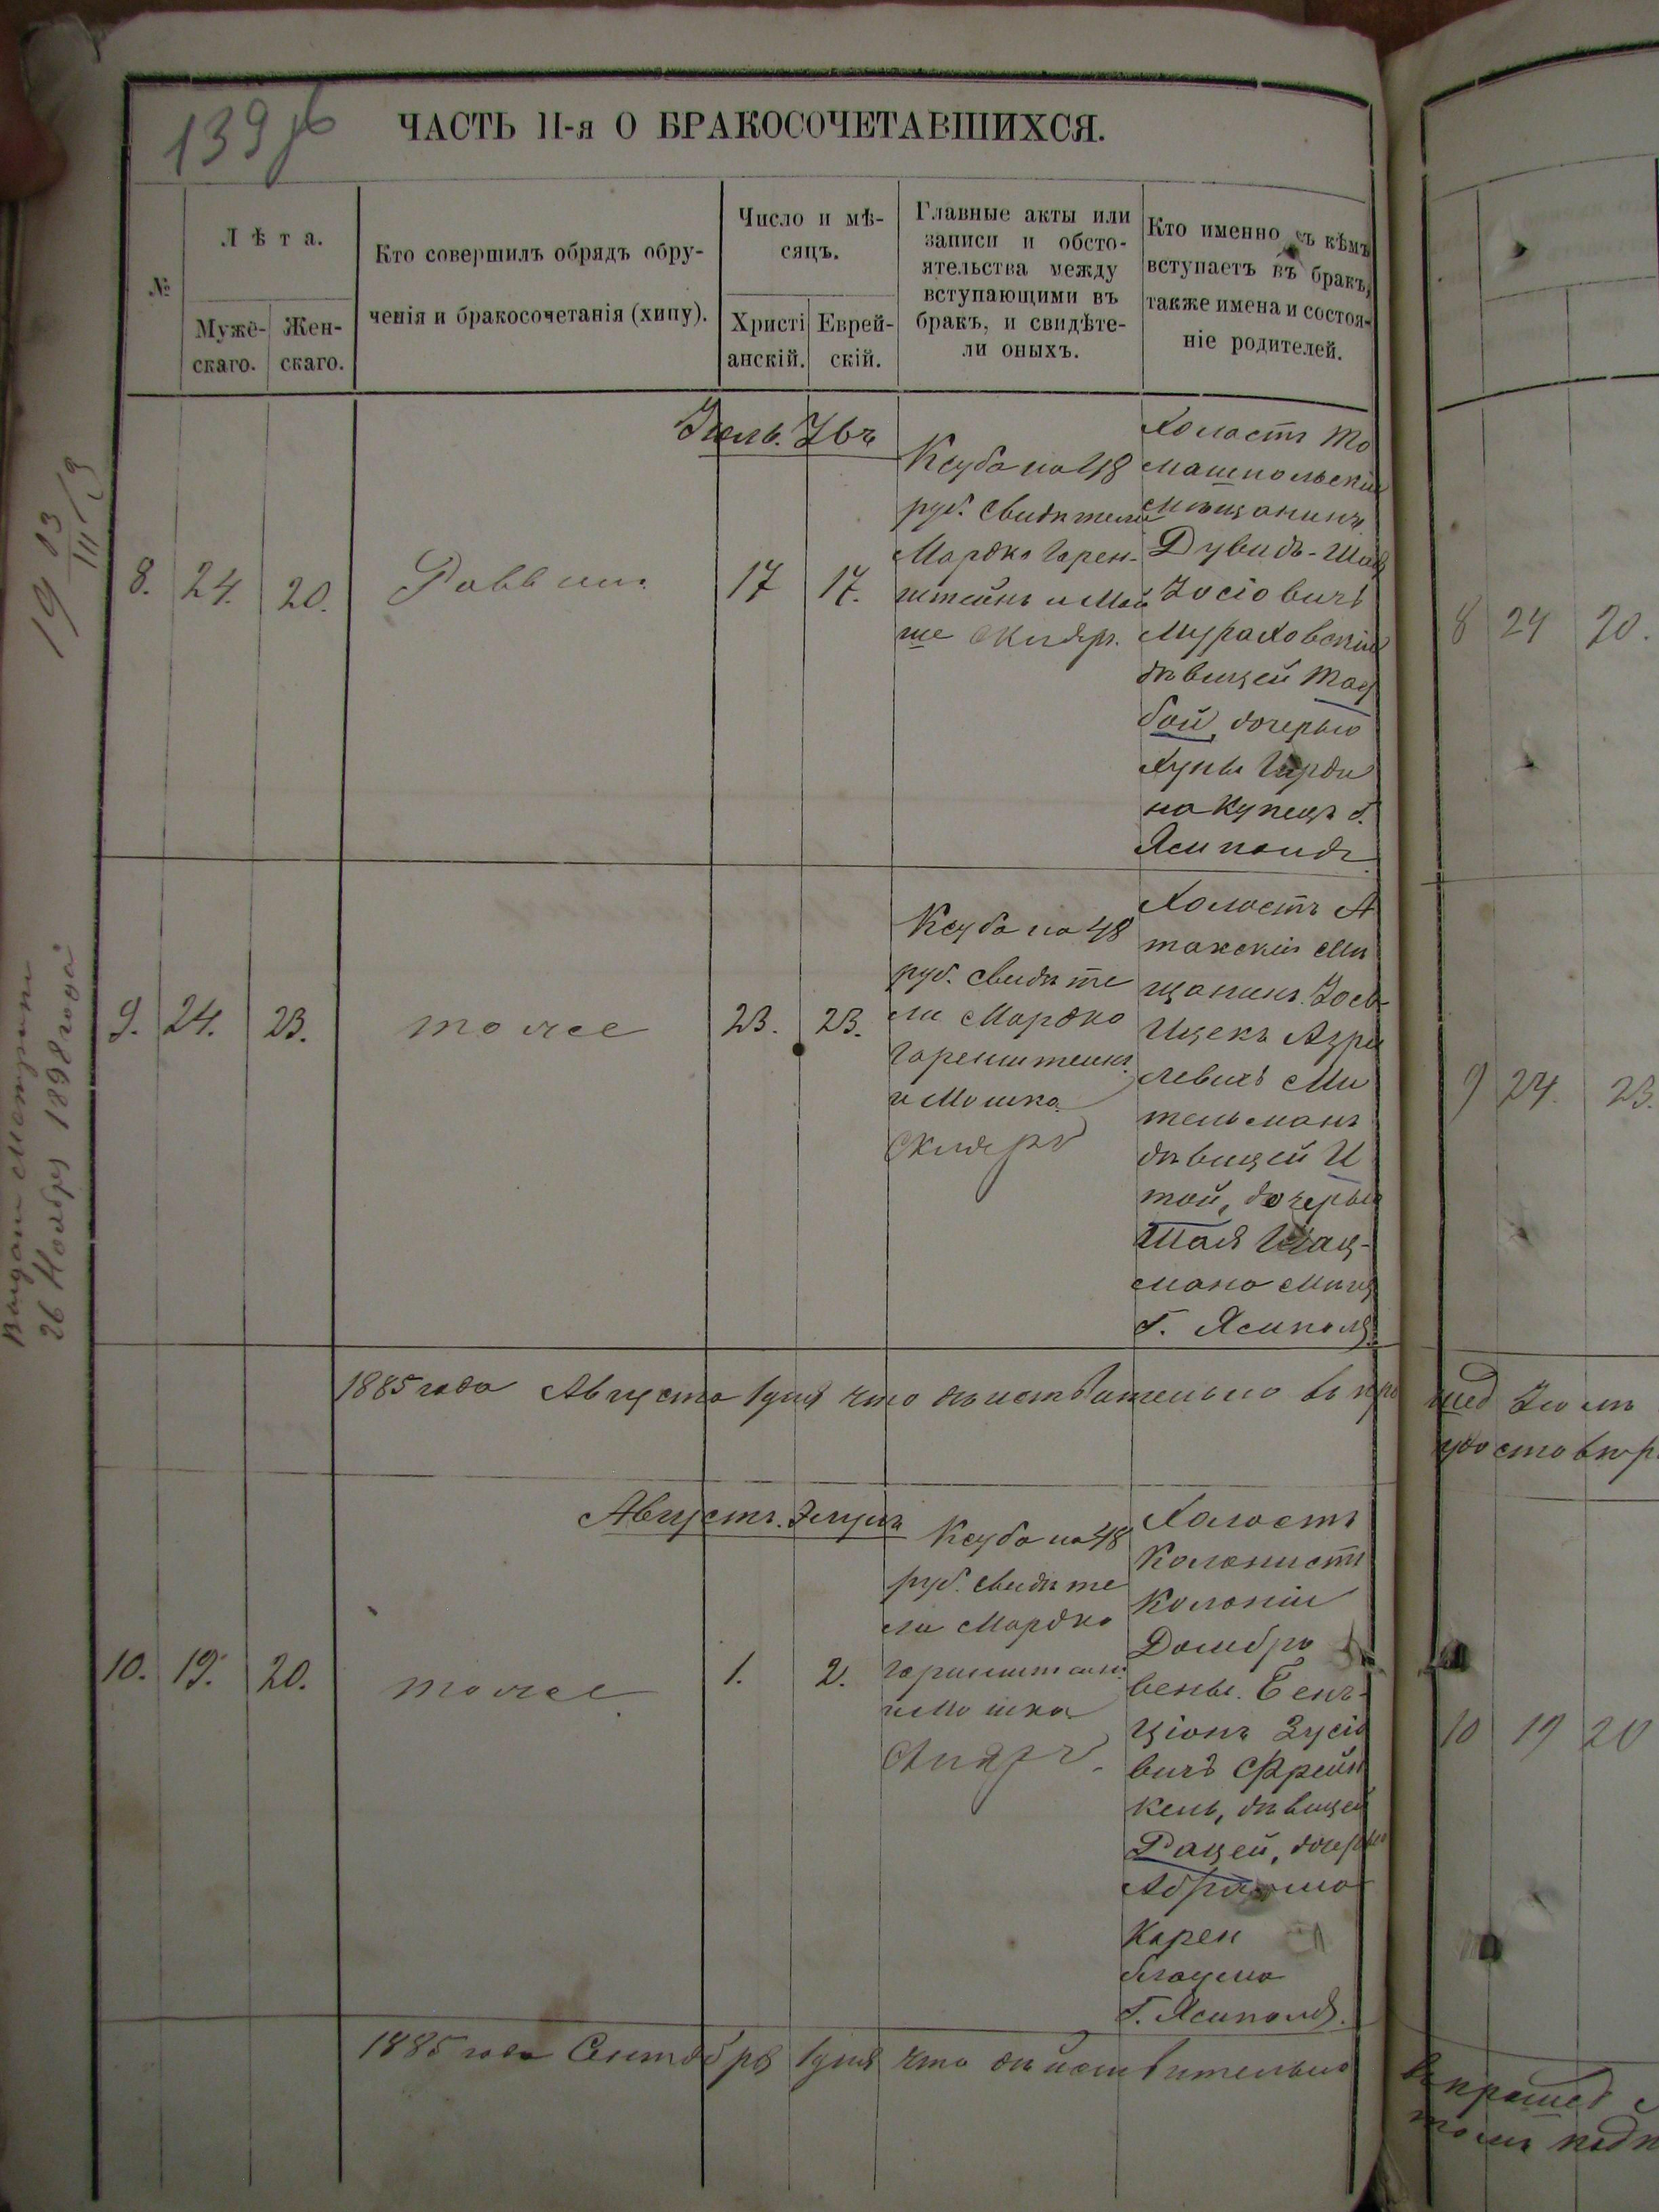 139
ЧАСТЬ II-я О БРАКОСОЧЕТАВШИХСЯ.
№
Лѣта.
Муже-
скаго.
Жен-
скаго.
Кто совершилъ обрядъ обру-
ченія и бракосочетанія (хипу).
Число и мѣ-
сяцъ.
Христі
анскій.
Еврей-
скій.
Главные акты или
записи и обсто-
ятельства между
вступающими въ
бракъ, и свидѣте-
ли оныхъ.
Кто именно съ кѣмъ
вступаетъ въ бракъ,
также имена и состоя-
ніе родителей.
Іюль.
8. 24. 20.
Раввин
17 17.
Ксуба на 48
руб. Свидѣтели
Мордко Горен-
штейнъ и Мой
ше Скляръ.
Холостъ То
машпольскій
мѣщанинъ
Дувидъ-
Іосіовичъ
Мураховскій
дѣвицей Тау
бой, дочерью
Хуны
на Купецъ г.
9. 24. 23.
тоже
23. 23.
Ксуба на 48
руб. свидѣте
ли Мордко
Горенштейнъ
и Мошко
Скляръ
Холостъ А
такскій мѣ
щанинъ
Ицекъ Азри
левичъ Ми
тельманъ
дѣвицей И
той, дочерью
Шая
мана мѣщ
г. Ямполя
1885 года Августа 1 дня что дѣйствительно въ про
шед Іюлѣ
удостовѣр
Августъ. Элулъ
10. 19. 20.
тоже
1. 2.
Ксуба на 48
руб. свидѣте
ли Мордко
Горинштейн
и Мошко
Скляръ.
Холостъ
Колонистъ
Колоніи
Домбро
вены. Бенъ-
Ціонъ Зусіо
вичъ Френ
кель, дѣвицей
Рацей, дочерью
Абрама
Корен
блюма
г. Ямполя.
1885 года Сентября 1 дня что дѣйствительно
въ прошед
19 03/III 13
26 Ноября 1898 года
8 24 20.
9 24. 23.
10 19 20